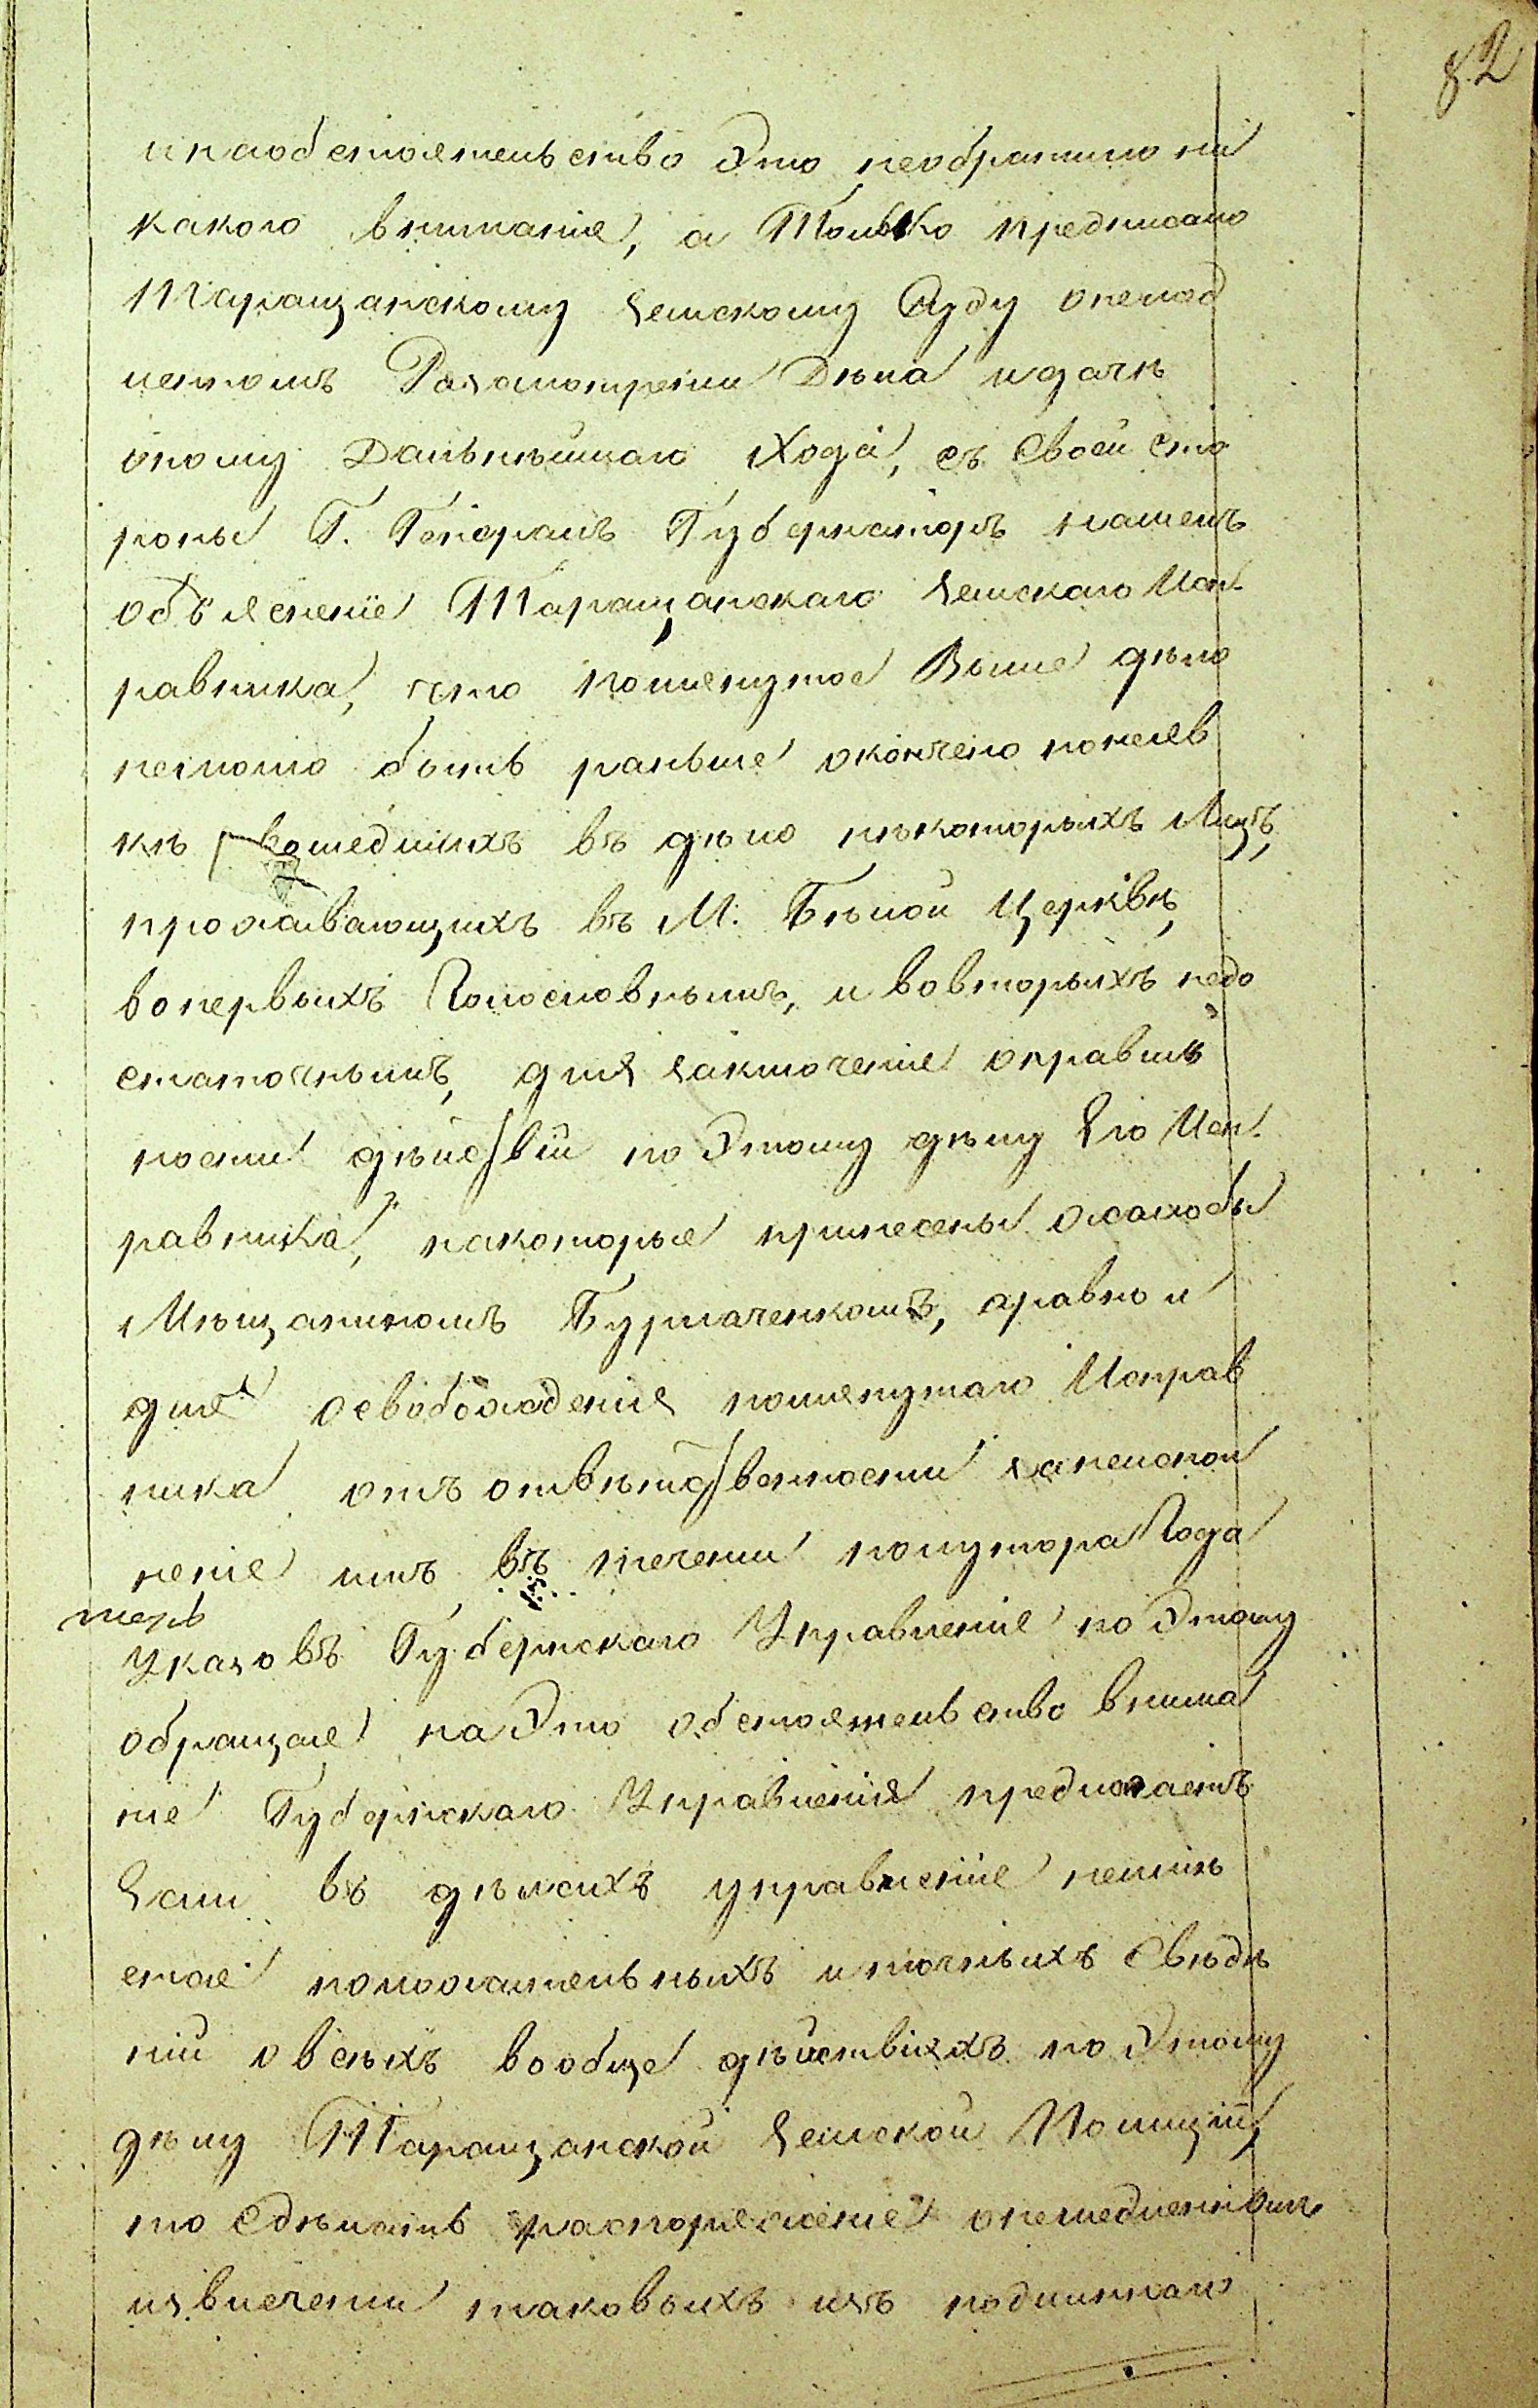 82
инаобстоятельство Это необратило ни
какого вниманія, а Только предписано
Таращанскому Земскому Суду онемед
ленномъ Разсмотреніи Дѣла идачѣ
оному Дальнѣйшаго Хода, съ Своей сто
роны Г. Генералъ Губернаторъ нашелъ
объясненіе Таращанскаго Земскаго Исп
равника, что помянутое Выше дѣло
немогло быть раньше окончено поняв
кѣ вошедшихъ въ дѣло нѣкоторыхъ Лицъ,
проживающихъ въ М. Бѣлой Церквѣ,
вопервыхъ Голословнымъ, и вовторыхъ недо
статочнымъ, для заключенія оправиль
ности дѣйствій по Этому дѣлу Его Исп
равника, накоторые принесены жалобы
Мѣщаниномъ Бурлаченкомъ, аравно и
для освобожденія помянутаго Исправ
ника отъ отвѣтственности занеиспол
неніе имъ въ теченіи полутора Года
терь
Указовъ Губернскаго Управленія по Этому
обращая на Это обстоятельство внима
ніе Губернскаго Управленія предлагаетъ
Если въ дѣлахъ управленія неимѣ
етсе положительныхъ иточныхъ Свѣдѣ
ній овсѣхъ вообще дѣйствіяхъ по Этому
дѣлу Таращанской Земской Полиціи,
то Сдѣлать распоряженіе онемедленномъ
извлеченіи таковыхъ изъ подлиннаго